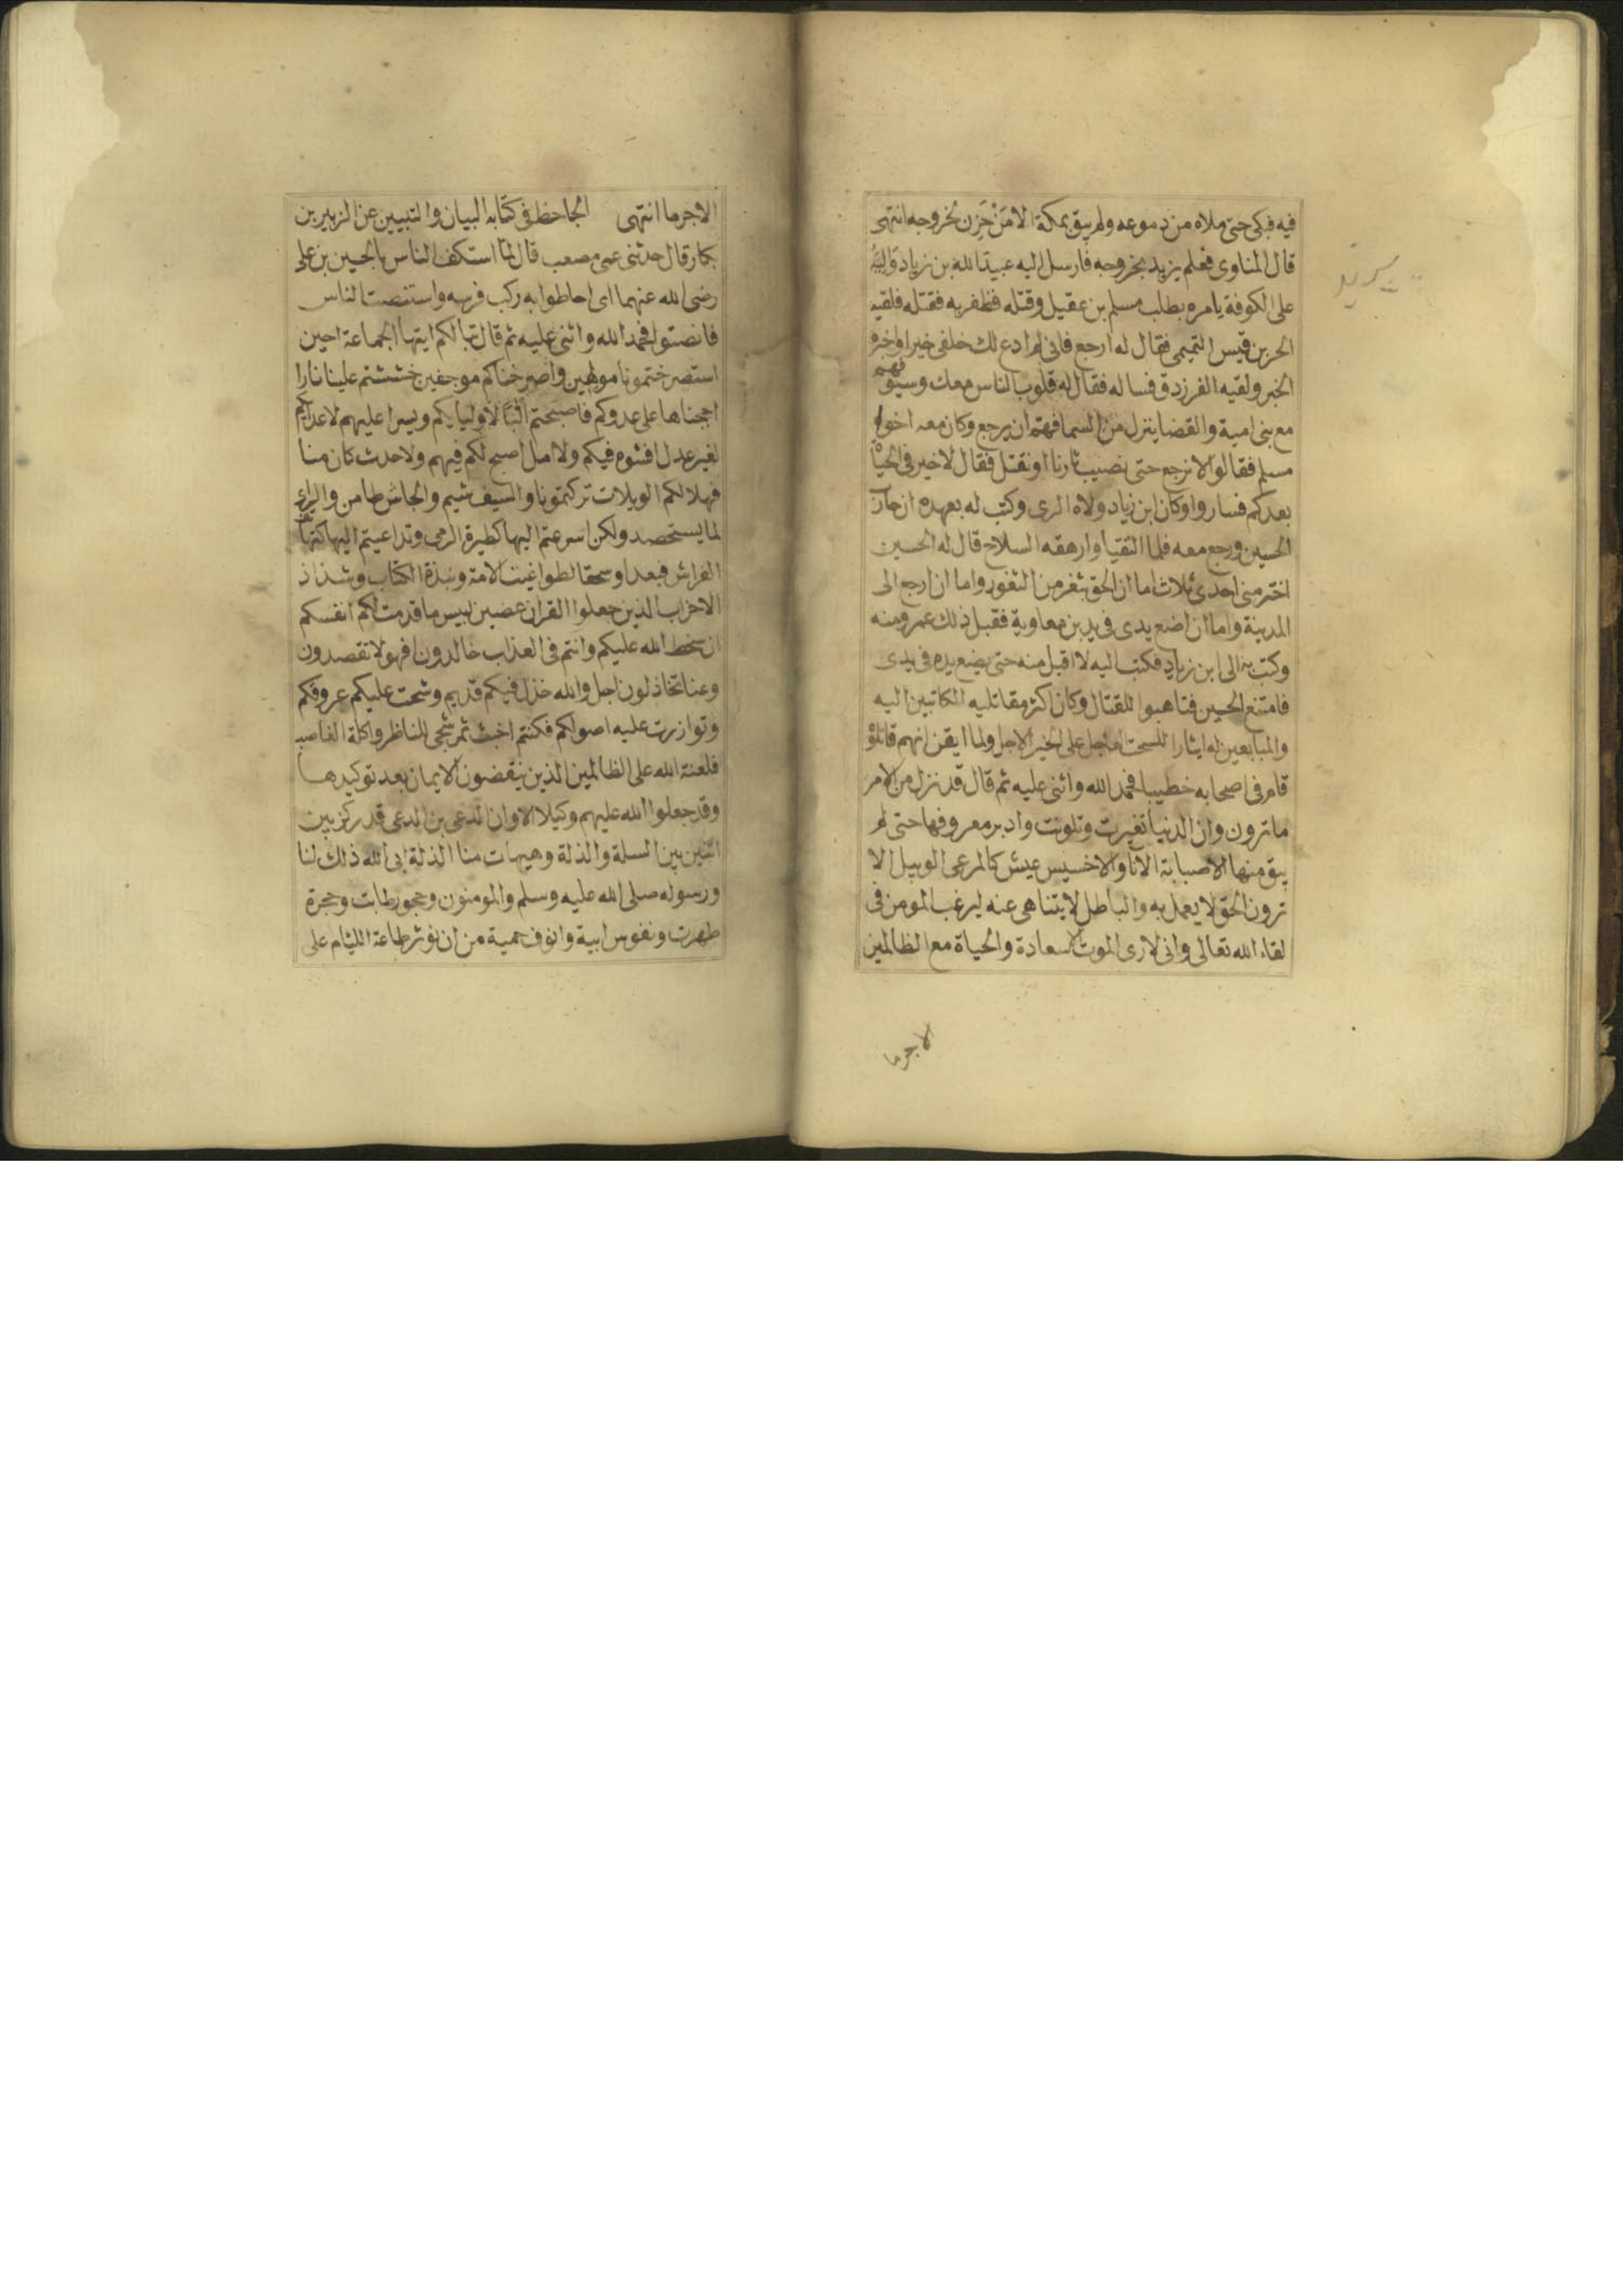 فيه فبكى حتى ملاه من دموعه ولم يبق بمكة الا من حَزِن لخروجه انتهى
قال المناوى فعلم يزيد بخروجه فارسل اليه عبيد الله بن زياد واليه
على الكوفة يامره بطلب مسلم بن عقيل وقتله فظفر به فقتله فلقيه
الحر بن قيس التميمى فقال له ارجع فانى لم ادع لك خلفى خيرا واخبره
الخبر ولقيه الفرزدق فساله فقال له قلوب الناس معك وسيوفهم
مع بنى امية والقضا ينزل من السما فهم ان يرجع وكان معه اخوة
مسلم فقالوا لا نرجع حتى نصيب ثارنا او نقتل فقال لا خير فى الحياة
بعدكم فساروا وكان ابن زياد ولاه الرى وكتب له بعهده ان حارب
الحسين ورجع معه فلما التقيا وارهقه السلاح قال له الحسين
اختر منى احدى ثلاث اما ان الحق بثغر من الثغور واما ان ارجع الى
المدينة واما ان اضع يدى فى يد بن معاوية فقبل ذلك عمرو منه
وكتب به الى ابن زياد فكتب اليه لا اقبل منه حتى يضع يده فى يدى
فامتنع الحسين فتاهبوا للقتال وكان اكثر مقاتليه الكاتبين اليه
والمبايعين له ايثارا للسحت العاجل على الخير الاجل ولما ايقن انهم قاتلوه
قام فى اصحابه خطيبا فحمد الله واثنى عليه ثم قال قد نزل من الامر
ما ترون وان الدنيا تغيرت وتلونت وادبر معروفها حتى لم
يبق منها الا صبابة الانا والا خسيس عيش كالمرعى الوبيل الا
ترون الحق لا يعمل به والباطل لا يتناهى عنه ليرغب المومن فى
لقاء الله تعالى وانى لا ارى الموت الا سعادة والحياة مع الظالمين
الا جرما
الا جرما انتهى الجاحظ فى كتابه البيان والتبيين عن الزبير بن
بكار قال حدثنى عمى مصعب قال لما استكف الناس بالحسين بن على
رضى الله عنهما اى احاطوا به ركب فرسه واستنصت الناس
فانصتوا فحمد الله واثنى عليه ثم قال تبا لكم ايتها الجماعة احين
استصرختمونا مولهين واصرخناكم موجفين خششتم علينا نارا
اججناها على عدوكم فاصبحتم البا لاوليايكم ويسرا عليهم لاعدايكم
لغير عدل افشوه فيكم ولا امل اصبح لكم فيهم ولا حدث كان منا
فهلا لكم الويلات تركتمونا والسيف شيم والجاش طامن والراى
لما يستحصد ولكن اسرعتم اليها كطيرة الرمى وتداعيتم اليها كتهافت
الفراش فبعدا وسحقا لطواغيت الامة ونبذة الكتاب وشذاذ
الاحزاب الذين جعلوا القران عضين لبيس ما قدمت لكم انفسكم
ان سخط الله عليكم وانتم فى العذاب خالدون افهولا تقصدون
وعنا تخاذلون اجل والله خذل فيكم قديم وشحت عليكم عروقكم
وتوازرت عليه اصولكم فكنتم اخبث ثمر شجى للناظر واكلة الغاصب
فلعنة الله على الظالمين الذين ينقضون الايمان بعد توكيدها
وقد جعلوا الله عليهم وكيلا الا وان الدعى بن الدعى قد ركز بين
اثنين بين السلة والذلة وهيهات منا الذلة ابى الله ذلك لنا
ورسوله صلى الله عليه وسلم والمومنون وحجور طابت وحجزة
طهرت ونفوس ابية وانوف حمية من ان نوثر طاعة الليام على